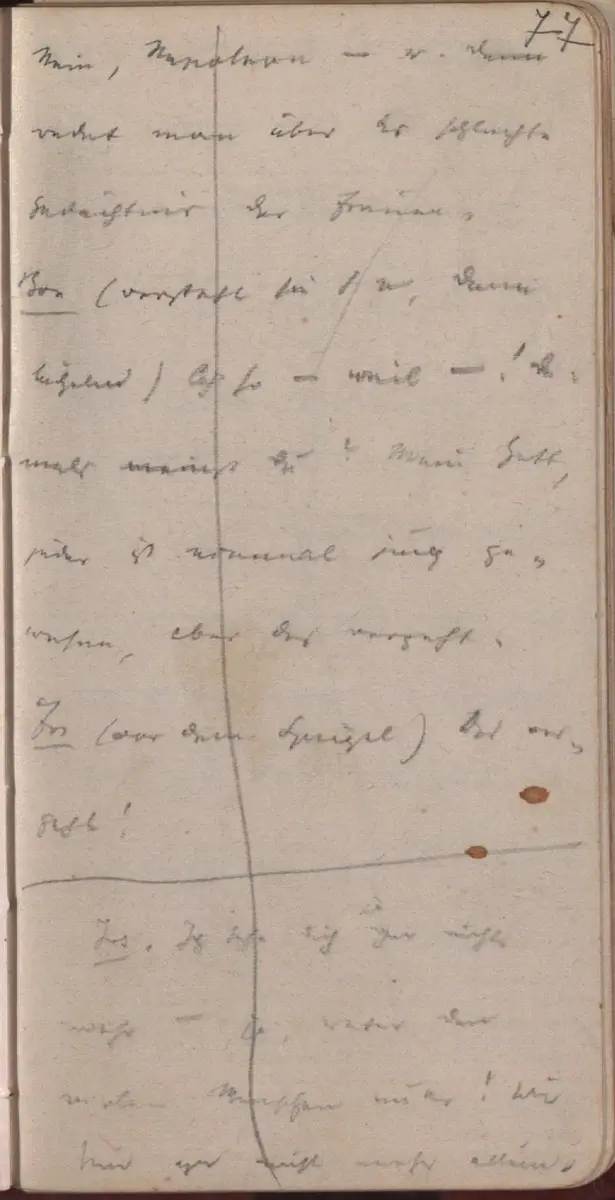 77
Nein, Napoleon — u. dann
redet man über das schlechte
Gedächtnis der Frauen.
Bon (versteht sie, dann
lächelnd) Ach so — weil — ! Da-
mals meinst du? Mein Gott,
jeder ist einmal jung ge-
wesen, aber das vergeht.
Jos (vor dem Spiegel) Das ver-
geht!
Jos. Ich sehe dich ja gar nicht
mehr — unter den
vielen Menschen immer! Wir
sind gar nicht mehr allein.